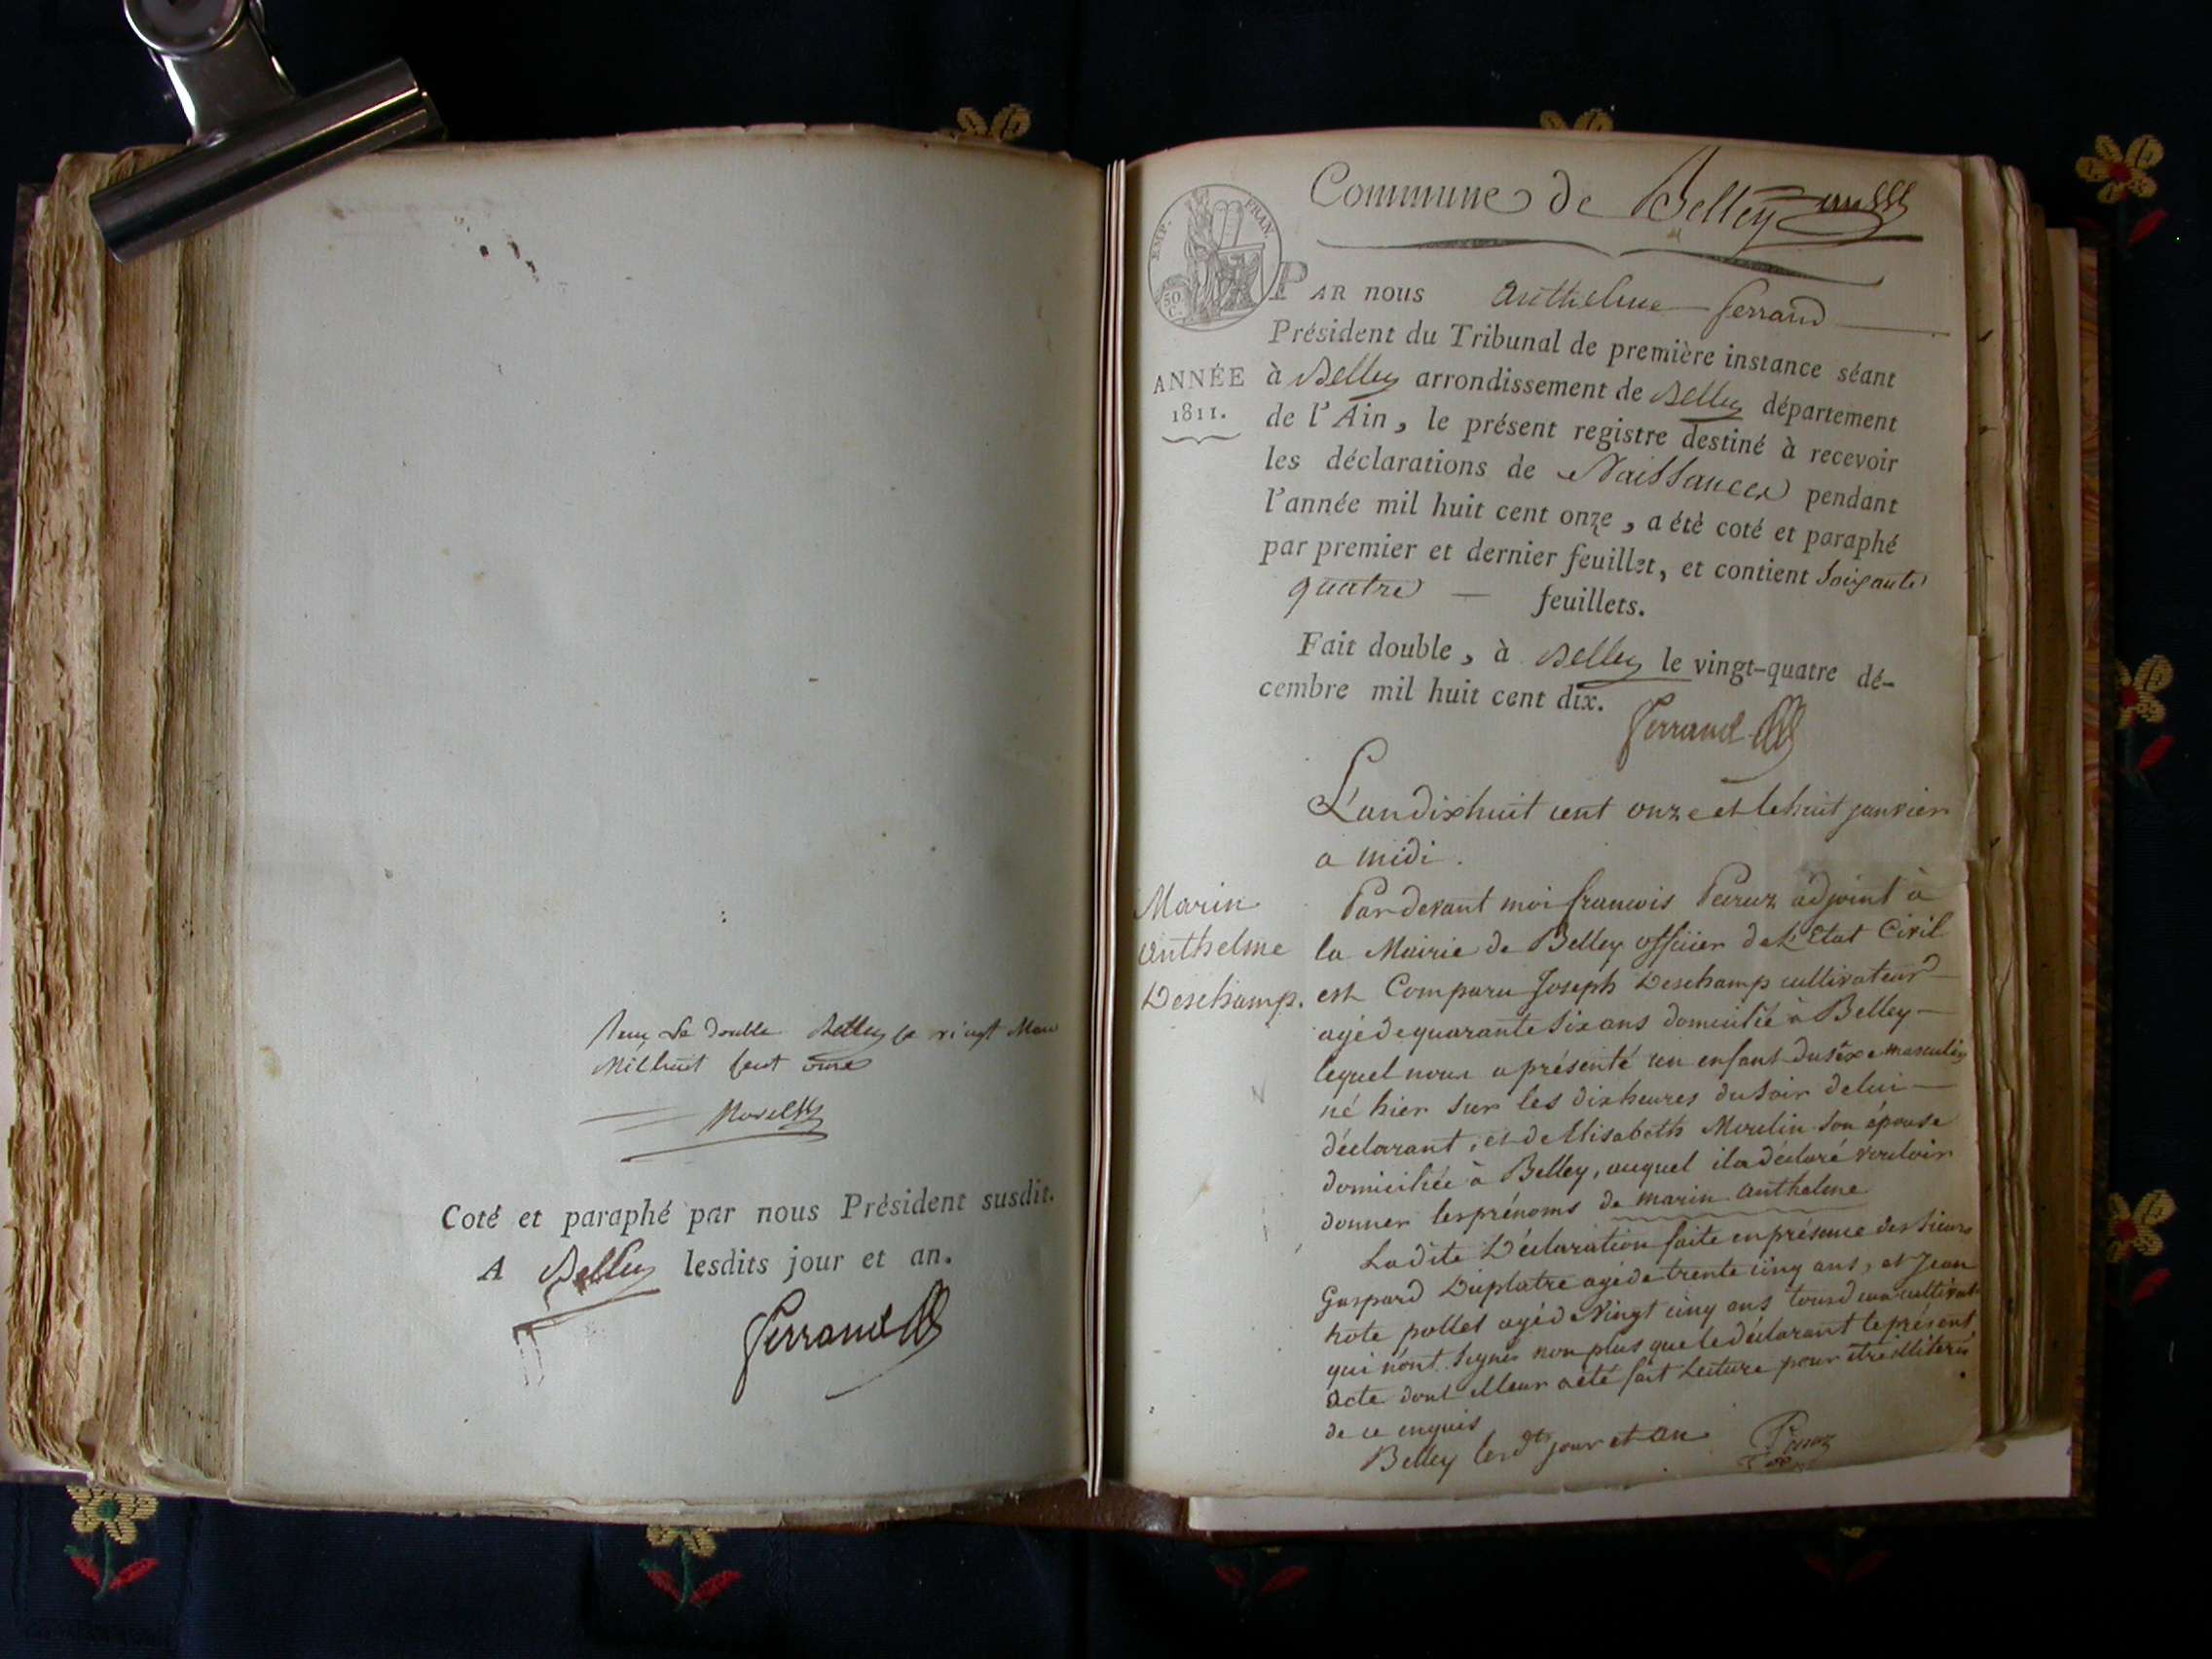 Reçu le double Belley le vingt Mars
Mil huit Cent onze
Coté et paraphé par nous Président susdit.
A Belley lesdits jour et an.
Ferrand
Commune de Belley
EMP. FRAN.
50
C.
PAR nous anthelme ferrand
Président du Tribunal de première instance séant
ANNÉE
1811.
à Belley arrondissement de Belley département
de l'Ain, le présent registre destiné à recevoir
les déclarations de Naissances pendant
l'année mil huit cent onze, a été coté et paraphé
par premier et dernier feuillet, et contient soixante
quatre — feuillets.
Fait double, à Belley le vingt-quatre dé-
cembre mil huit cent dix.
Ferrand
L'an dixhuit cent onze et le huit janvier
a midi.
Marin
Anthelme
Deschamp.
Pardevant moi francois Peruz adjoint à
la Mairie de Belley officier de L'Etat Civil
est Comparu Joseph Deschamp cultivateur
agé de quarante six ans domicilié à Belley
lequel nous a présenté un enfant du séxe masculin
né hier sur les dix heures du soir de lui
déclarant, et de Elisabeth Moulin son épouse
domiciliée à Belley, auquel il a déclaré vouloir
donner les prénoms de marin anthelme
Ladite Déclaration faite en présence des sieurs
Gaspard Duplatre agé de trente cinq ans, et Jean
hote pollet agé de Vingt cinq ans tous deux cultivat.
qui n'ont signés non plus que le déclarant le présent
acte dont il leur a été fait Lecture pour etre illiterés
de ce enquis
Belley lesdts jour et an
Peruz